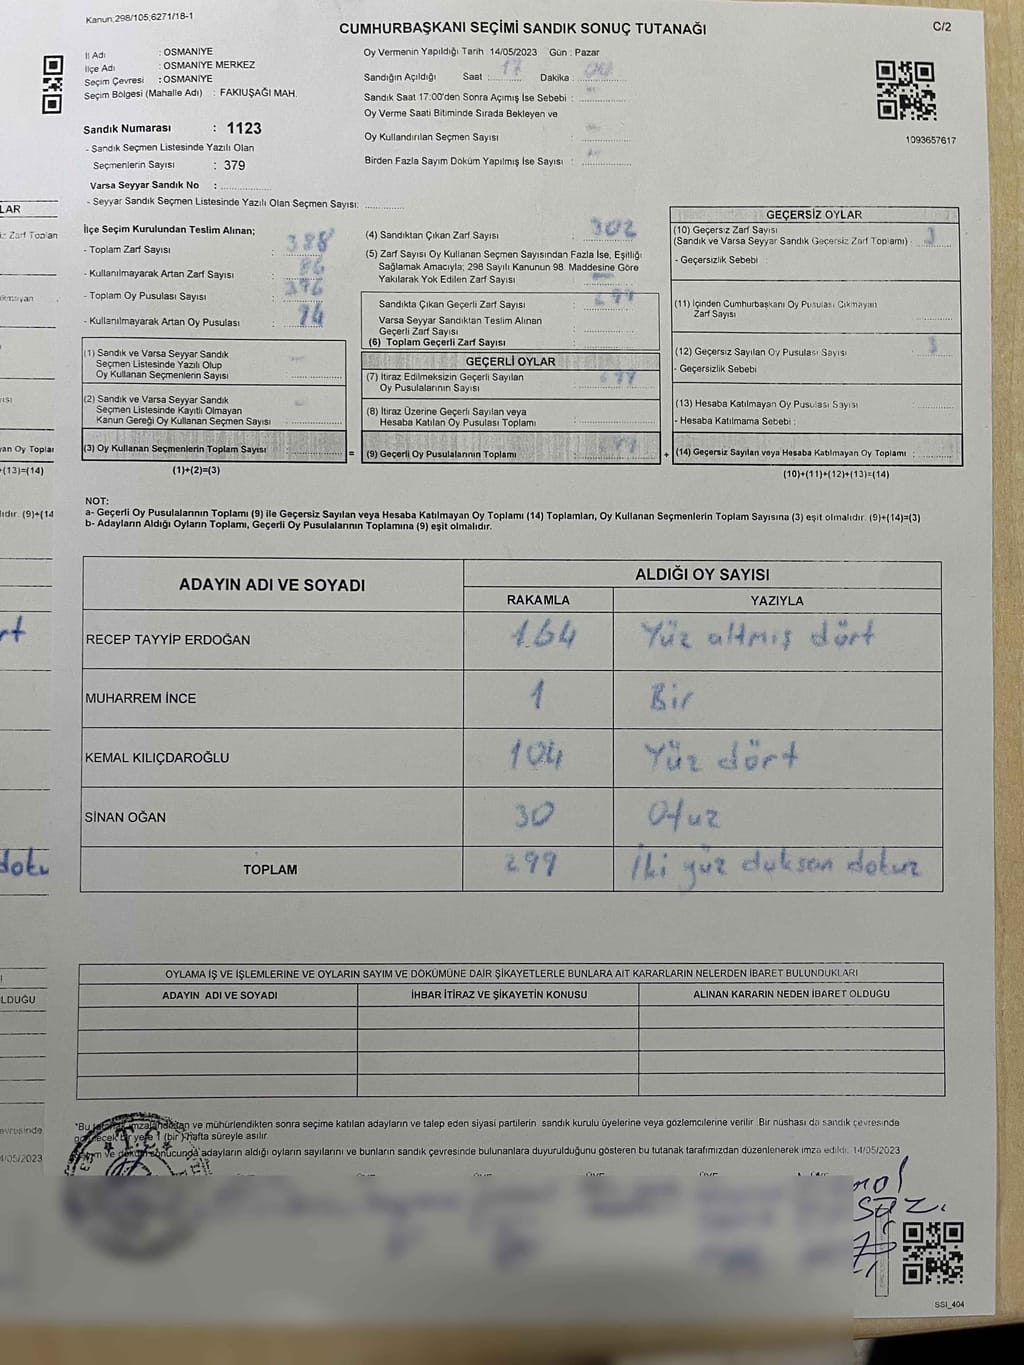 Kanun:298/105;6271/18-1
CUMHURBAŞKANI SEÇİMİ SANDIK SONUÇ TUTANAĞI
C/2
İl Adı : OSMANİYE
İlçe Adı : OSMANİYE MERKEZ
Seçim Çevresi : OSMANİYE
Seçim Bölgesi (Mahalle Adı) : FAKIUŞAĞI MAH.
Sandık Numarası : 1123
- Sandık Seçmen Listesinde Yazılı Olan
Seçmenlerin Sayısı : 379
Varsa Seyyar Sandık No :
- Seyyar Sandık Seçmen Listesinde Yazılı Olan Seçmen Sayısı:
Oy Vermenin Yapıldığı Tarih : 14/05/2023 Gün : Pazar
Sandığın Açıldığı Saat : 17 Dakika : 00
Sandık Saat 17:00'den Sonra Açımış İse Sebebi :
Oy Verme Saati Bitiminde Sırada Bekleyen ve
Oy Kullandırılan Seçmen Sayısı :
Birden Fazla Sayım Döküm Yapılmış İse Sayısı :
1093657617
İlçe Seçim Kurulundan Teslim Alınan;
- Toplam Zarf Sayısı : 388
- Kullanılmayarak Artan Zarf Sayısı : 86
- Toplam Oy Pusulası Sayısı : 376
- Kullanılmayarak Artan Oy Pusulası : 74
(1) Sandık ve Varsa Seyyar Sandık
Seçmen Listesinde Yazılı Olup
Oy Kullanan Seçmenlerin Sayısı :
(2) Sandık ve Varsa Seyyar Sandık
Seçmen Listesinde Kayıtlı Olmayan
Kanun Gereği Oy Kullanan Seçmen Sayısı :
(3) Oy Kullanan Seçmenlerin Toplam Sayısı :
(1)+(2)=(3)
(4) Sandıktan Çıkan Zarf Sayısı : 302
(5) Zarf Sayısı Oy Kullanan Seçmen Sayısından Fazla İse, Eşitliği
Sağlamak Amacıyla; 298 Sayılı Kanunun 98. Maddesine Göre
Yakılarak Yok Edilen Zarf Sayısı :
Sandıkta Çıkan Geçerli Zarf Sayısı : 299
Varsa Seyyar Sandıktan Teslim Alınan
Geçerli Zarf Sayısı :
(6) Toplam Geçerli Zarf Sayısı :
GEÇERLİ OYLAR
(7) İtiraz Edilmeksizin Geçerli Sayılan
Oy Pusulalarının Sayısı :
(8) İtiraz Üzerine Geçerli Sayılan veya
Hesaba Katılan Oy Pusulası Toplamı :
= (9) Geçerli Oy Pusulalarının Toplamı :
GEÇERSİZ OYLAR
(10) Geçersiz Zarf Sayısı
(Sandık ve Varsa Seyyar Sandık Geçersiz Zarf Toplamı) : 3
- Geçersizlik Sebebi :
(11) İçinden Cumhurbaşkanı Oy Pusulası Çıkmayan
Zarf Sayısı :
(12) Geçersiz Sayılan Oy Pusulası Sayısı : 3
- Geçersizlik Sebebi
(13) Hesaba Katılmayan Oy Pusulası Sayısı :
- Hesaba Katılmama Sebebi :
+ (14) Geçersiz Sayılan veya Hesaba Katılmayan Oy Toplamı :
(10)+(11)+(12)+(13)=(14)
NOT:
a- Geçerli Oy Pusulalarının Toplamı (9) ile Geçersiz Sayılan veya Hesaba Katılmayan Oy Toplamı (14) Toplamları, Oy Kullanan Seçmenlerin Toplam Sayısına (3) eşit olmalıdır. (9)+(14)=(3)
b- Adayların Aldığı Oyların Toplamı, Geçerli Oy Pusulalarının Toplamına (9) eşit olmalıdır.
ADAYIN ADI VE SOYADI
ALDIĞI OY SAYISI
RAKAMLA YAZIYLA
RECEP TAYYİP ERDOĞAN 164 Yüz altmış dört
MUHARREM İNCE 1 Bir
KEMAL KILIÇDAROĞLU 104 Yüz dört
SİNAN OĞAN 30 Otuz
TOPLAM 299 İki yüz doksan dokuz
OYLAMA İŞ VE İŞLEMLERİNE VE OYLARIN SAYIM VE DÖKÜMÜNE DAİR ŞİKAYETLERLE BUNLARA AİT KARARLARIN NELERDEN İBARET BULUNDUKLARI
ADAYIN ADI VE SOYADI İHBAR İTİRAZ VE ŞİKAYETİN KONUSU ALINAN KARARIN NEDEN İBARET OLDUĞU
*Bu imzalandıktan ve mühürlendikten sonra seçime katılan adayların ve talep eden siyasi partilerin sandık kurulu üyelerine veya gözlemcilerine verilir. Bir nüshası da sandık çevresinde
bir yere 1 (bir) hafta süreyle asılır.
ve sonucunda adayların aldığı oyların sayılarını ve bunların sandık çevresinde bulunanlara duyurulduğunu gösteren bu tutanak tarafımızdan düzenlenerek imza edildi. 14/05/2023
SSI_404